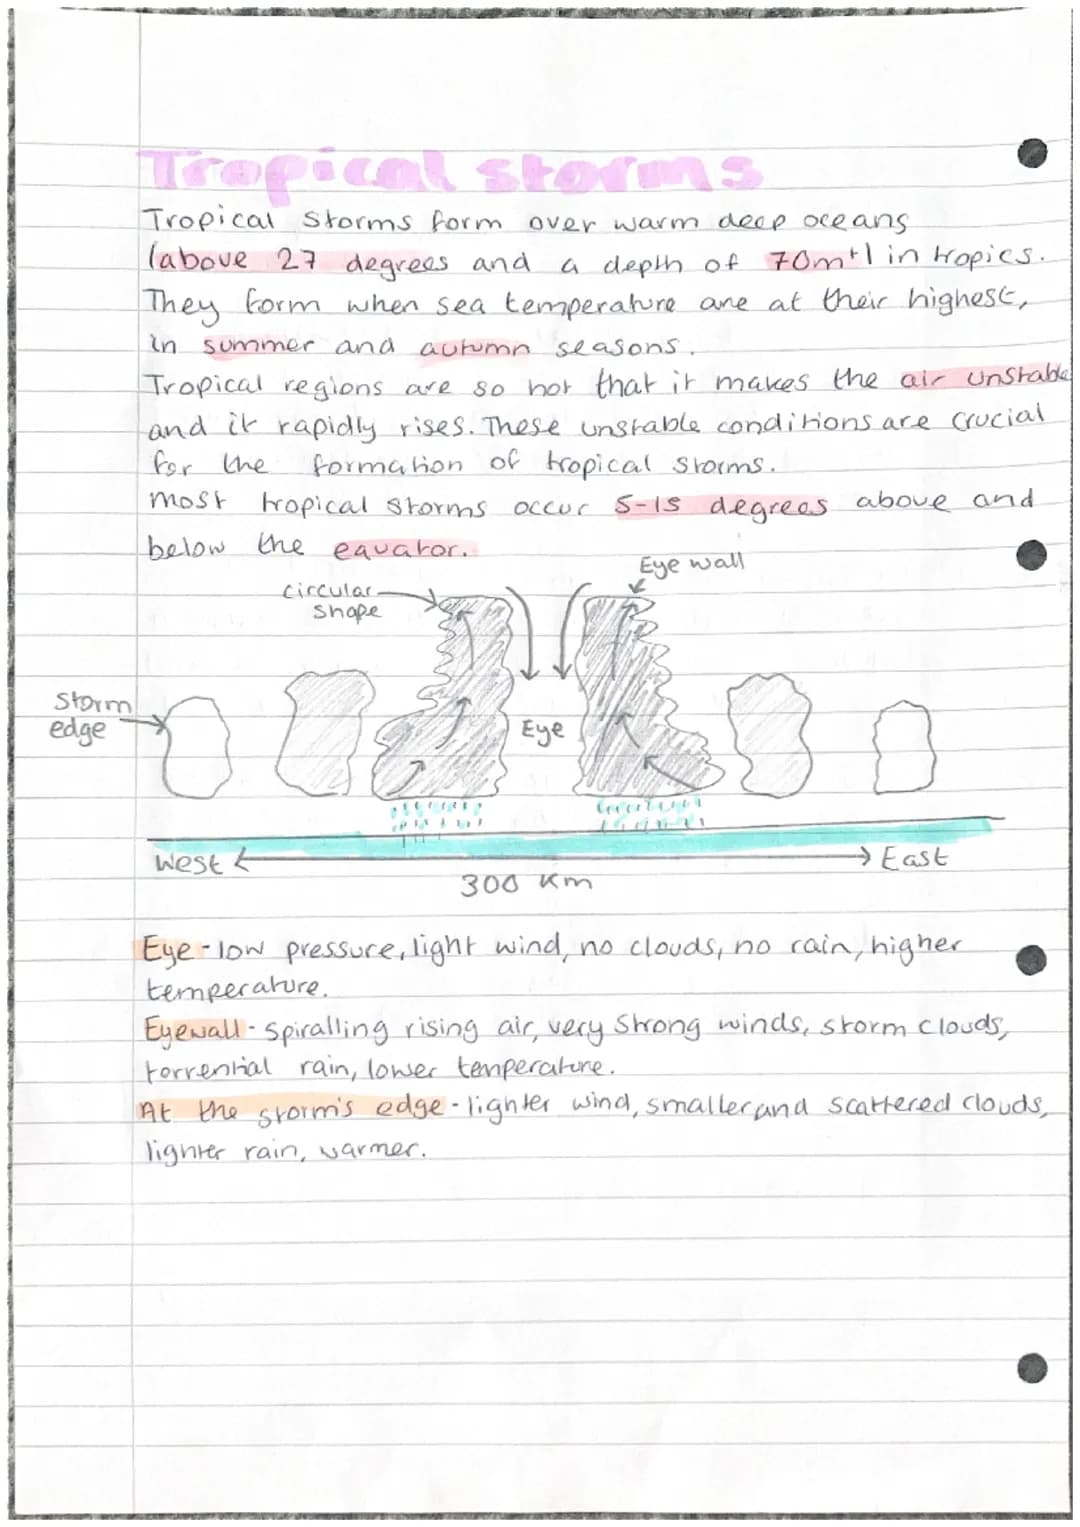 Tropical storms
Tropical storms form over warm deep oceans
(above 27 degrees and a depth of 70m+) in tropics.
They form when sea temperature are at their highest,
in summer and autumn seasons.
Tropical regions are so hot that it makes the air unstable
and it rapidly rises. These unstable conditions are crucial
for the formation of tropical storms.
Most tropical storms occur 5-15 degrees above and
below the equator.
Eye wall
circular
shape
Storm
edge
Eye
West
East
300 Km
Eye - low pressure, light wind, no clouds, no rain, higher
temperature.
Eyewall - spiralling rising air, very strong winds, storm clouds,
torrential rain, lower temperature.
At the storm's edge - lighter wind, smaller and scattered clouds,
lighter rain, warmer.